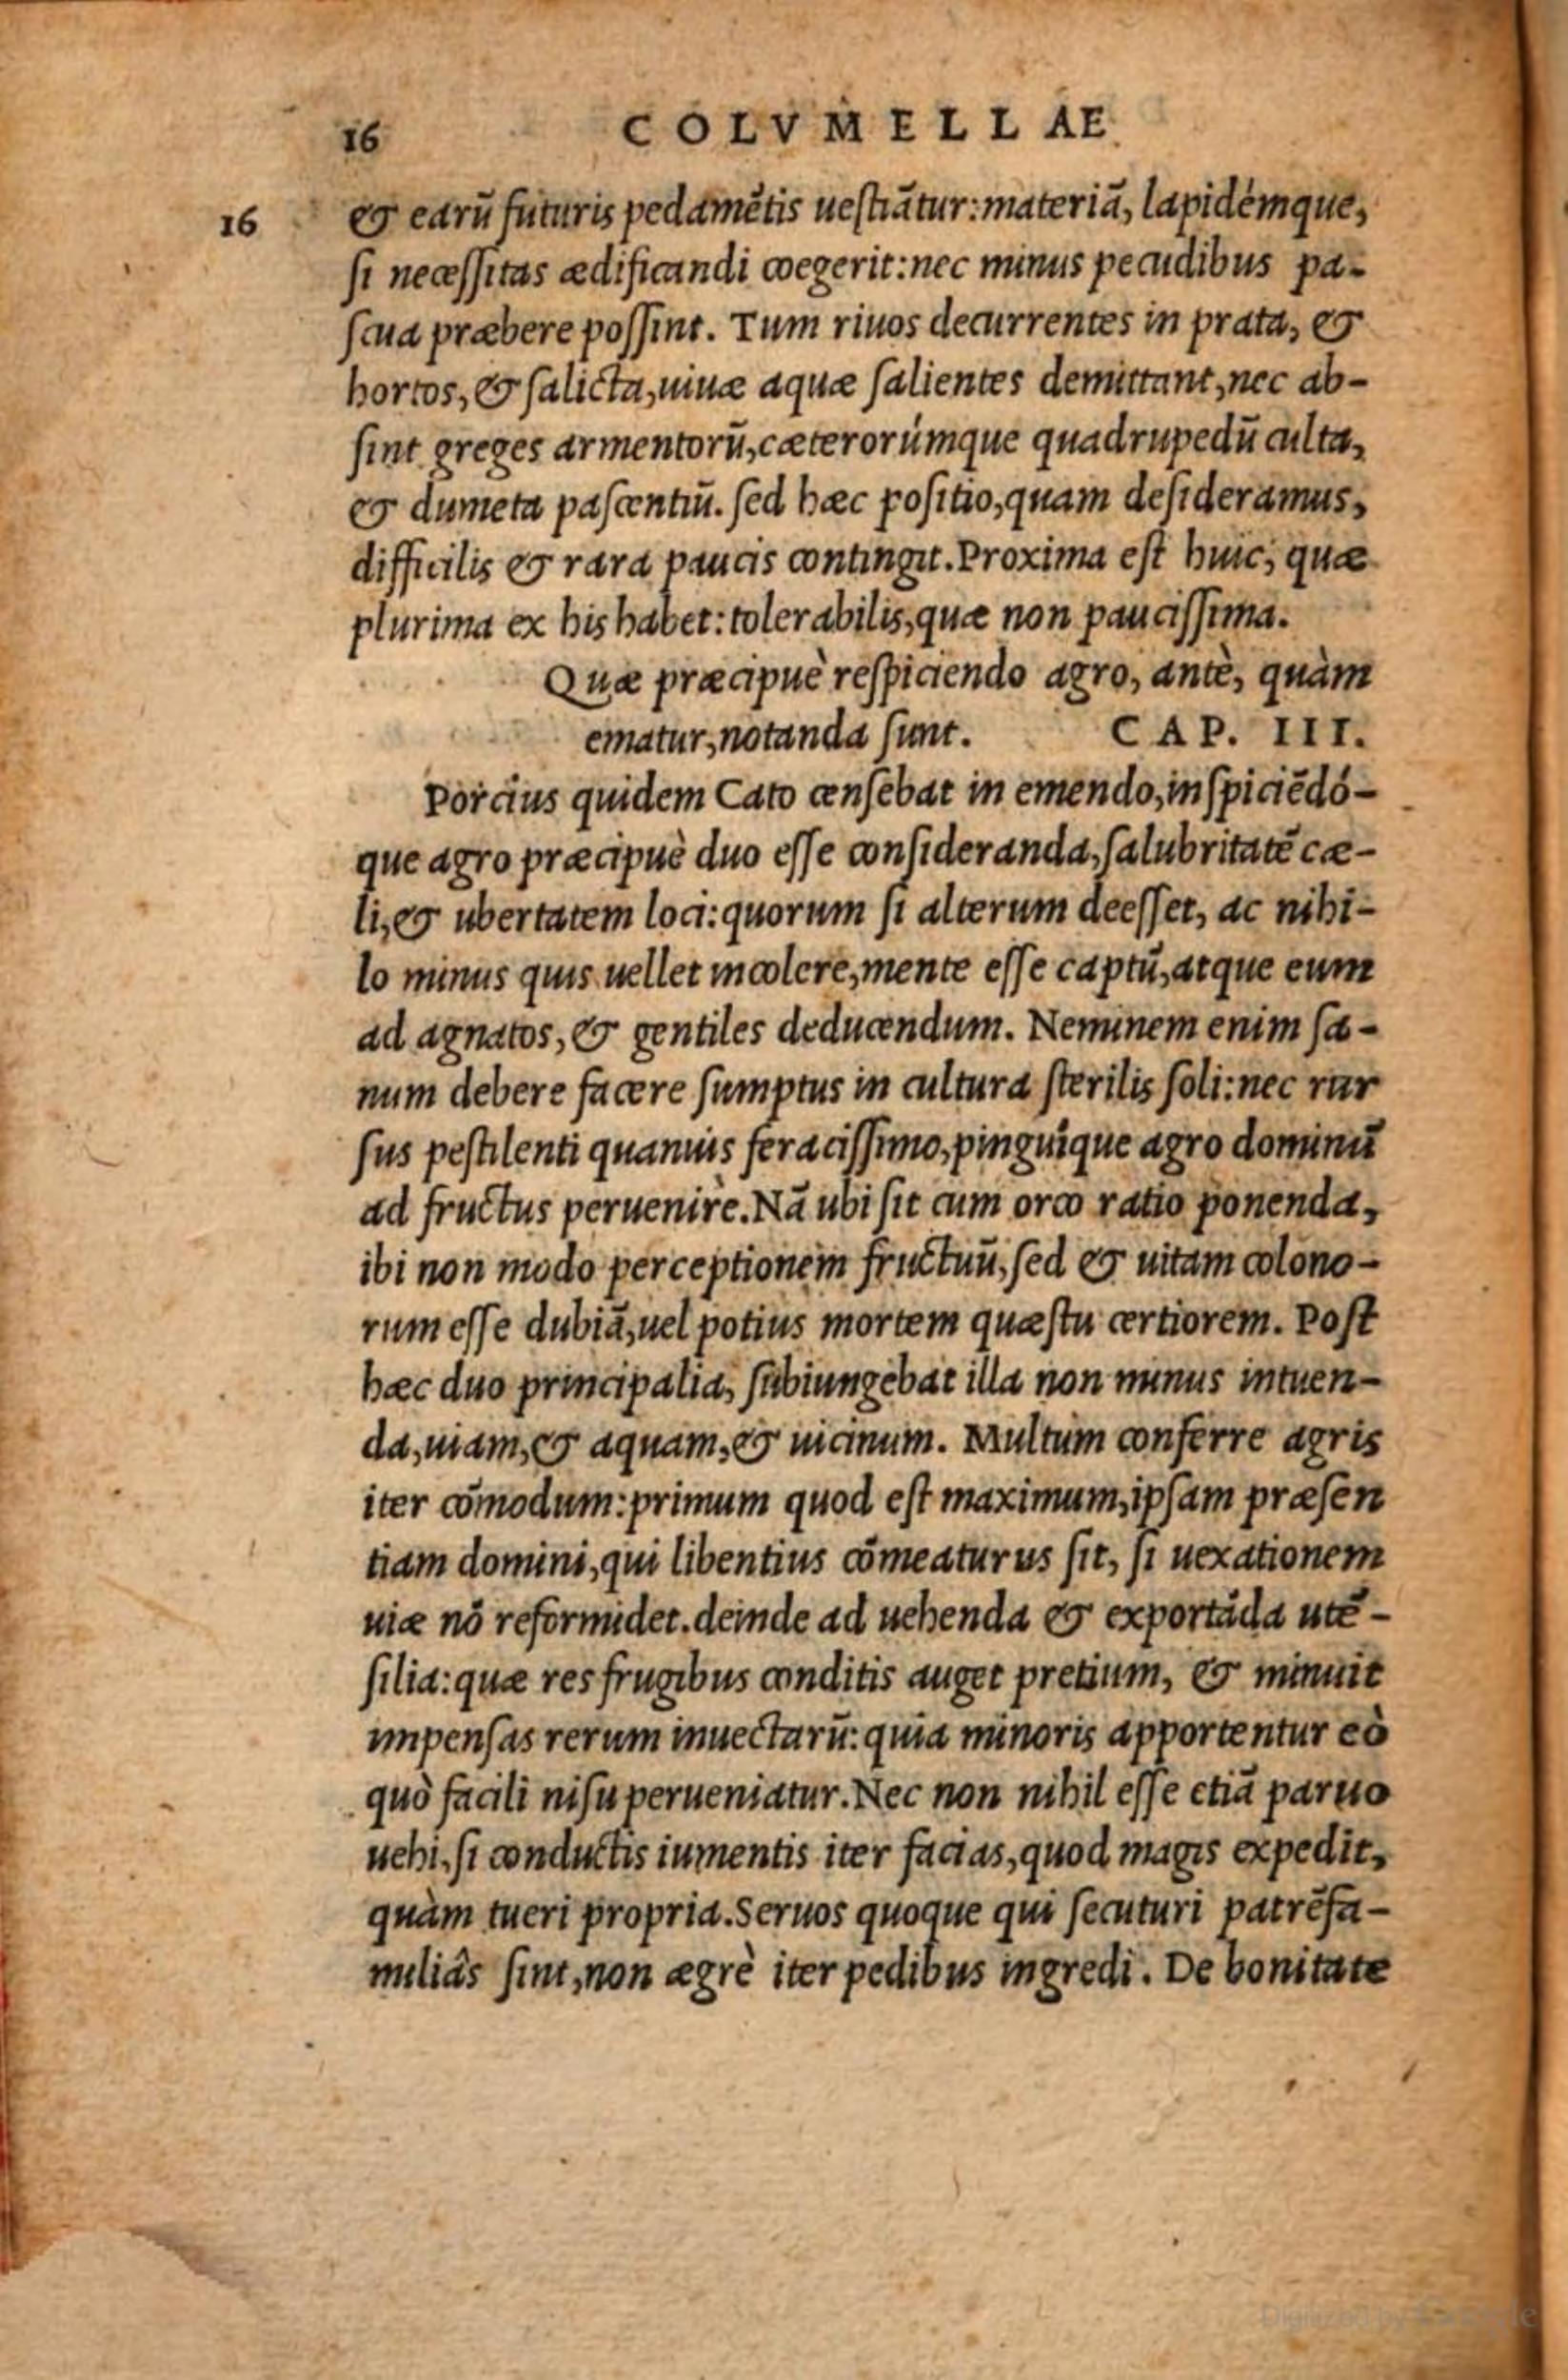 16 COLVMELLAE
16 & earū futuris pedamētis uestiātur: materiā, lapidémque,
si necessitas ædificandi coegerit: nec minus pecudibus pa-
scua præbere possint. Tum riuos decurrentes in prata, &
hortos, & salicta, uiuæ aquæ salientes demittant, nec ab-
sint greges armentorū, cæterorúmque quadrupedū culta,
& dumeta pascentiū. sed hæc positio, quam desideramus,
difficilis & rara paucis contingit. Proxima est huic, quæ
plurima ex his habet: tolerabilis, quæ non paucissima.
Quæ præcipuè respiciendo agro, antè, quàm
ematur, notanda sunt. CAP. III.
Porcius quidem Cato censebat in emendo, inspiciēdó-
que agro præcipuè duo esse consideranda, salubritatē cæ-
li, & ubertatem loci: quorum si alterum deesset, ac nihi-
lo minus quis uellet incolere, mente esse captū, atque eum
ad agnatos, & gentiles deducendum. Neminem enim sa-
num debere facere sumptus in cultura sterilis soli: nec rur
sus pestilenti quamuis feracissimo, pinguíque agro dominū
ad fructus peruenire. Nā ubi sit cum orco ratio ponenda,
ibi non modo perceptionem fructuū, sed & uitam colono-
rum esse dubiā, uel potius mortem quæstu certiorem. Post
hæc duo principalia, subiungebat illa non minus intuen-
da, uiam, & aquam, & uicinum. Multum conferre agris
iter cōmodum: primum quod est maximum, ipsam præsen
tiam domini, qui libentius cōmeaturus sit, si uexationem
uiæ nō reformidet. deinde ad uehenda & exportāda utē-
silia: quæ res frugibus conditis auget pretium, & minuit
impensas rerum inuectarū: quia minoris apportentur eò
quò facili nisu perueniatur. Nec non nihil esse etiā paruo
uehi, si conductis iumentis iter facias, quod magis expedit,
quàm tueri propria. Seruos quoque qui secuturi patrēfa-
miliâs sint, non ægrè iter pedibus ingredi. De bonitate
Digitized by Google